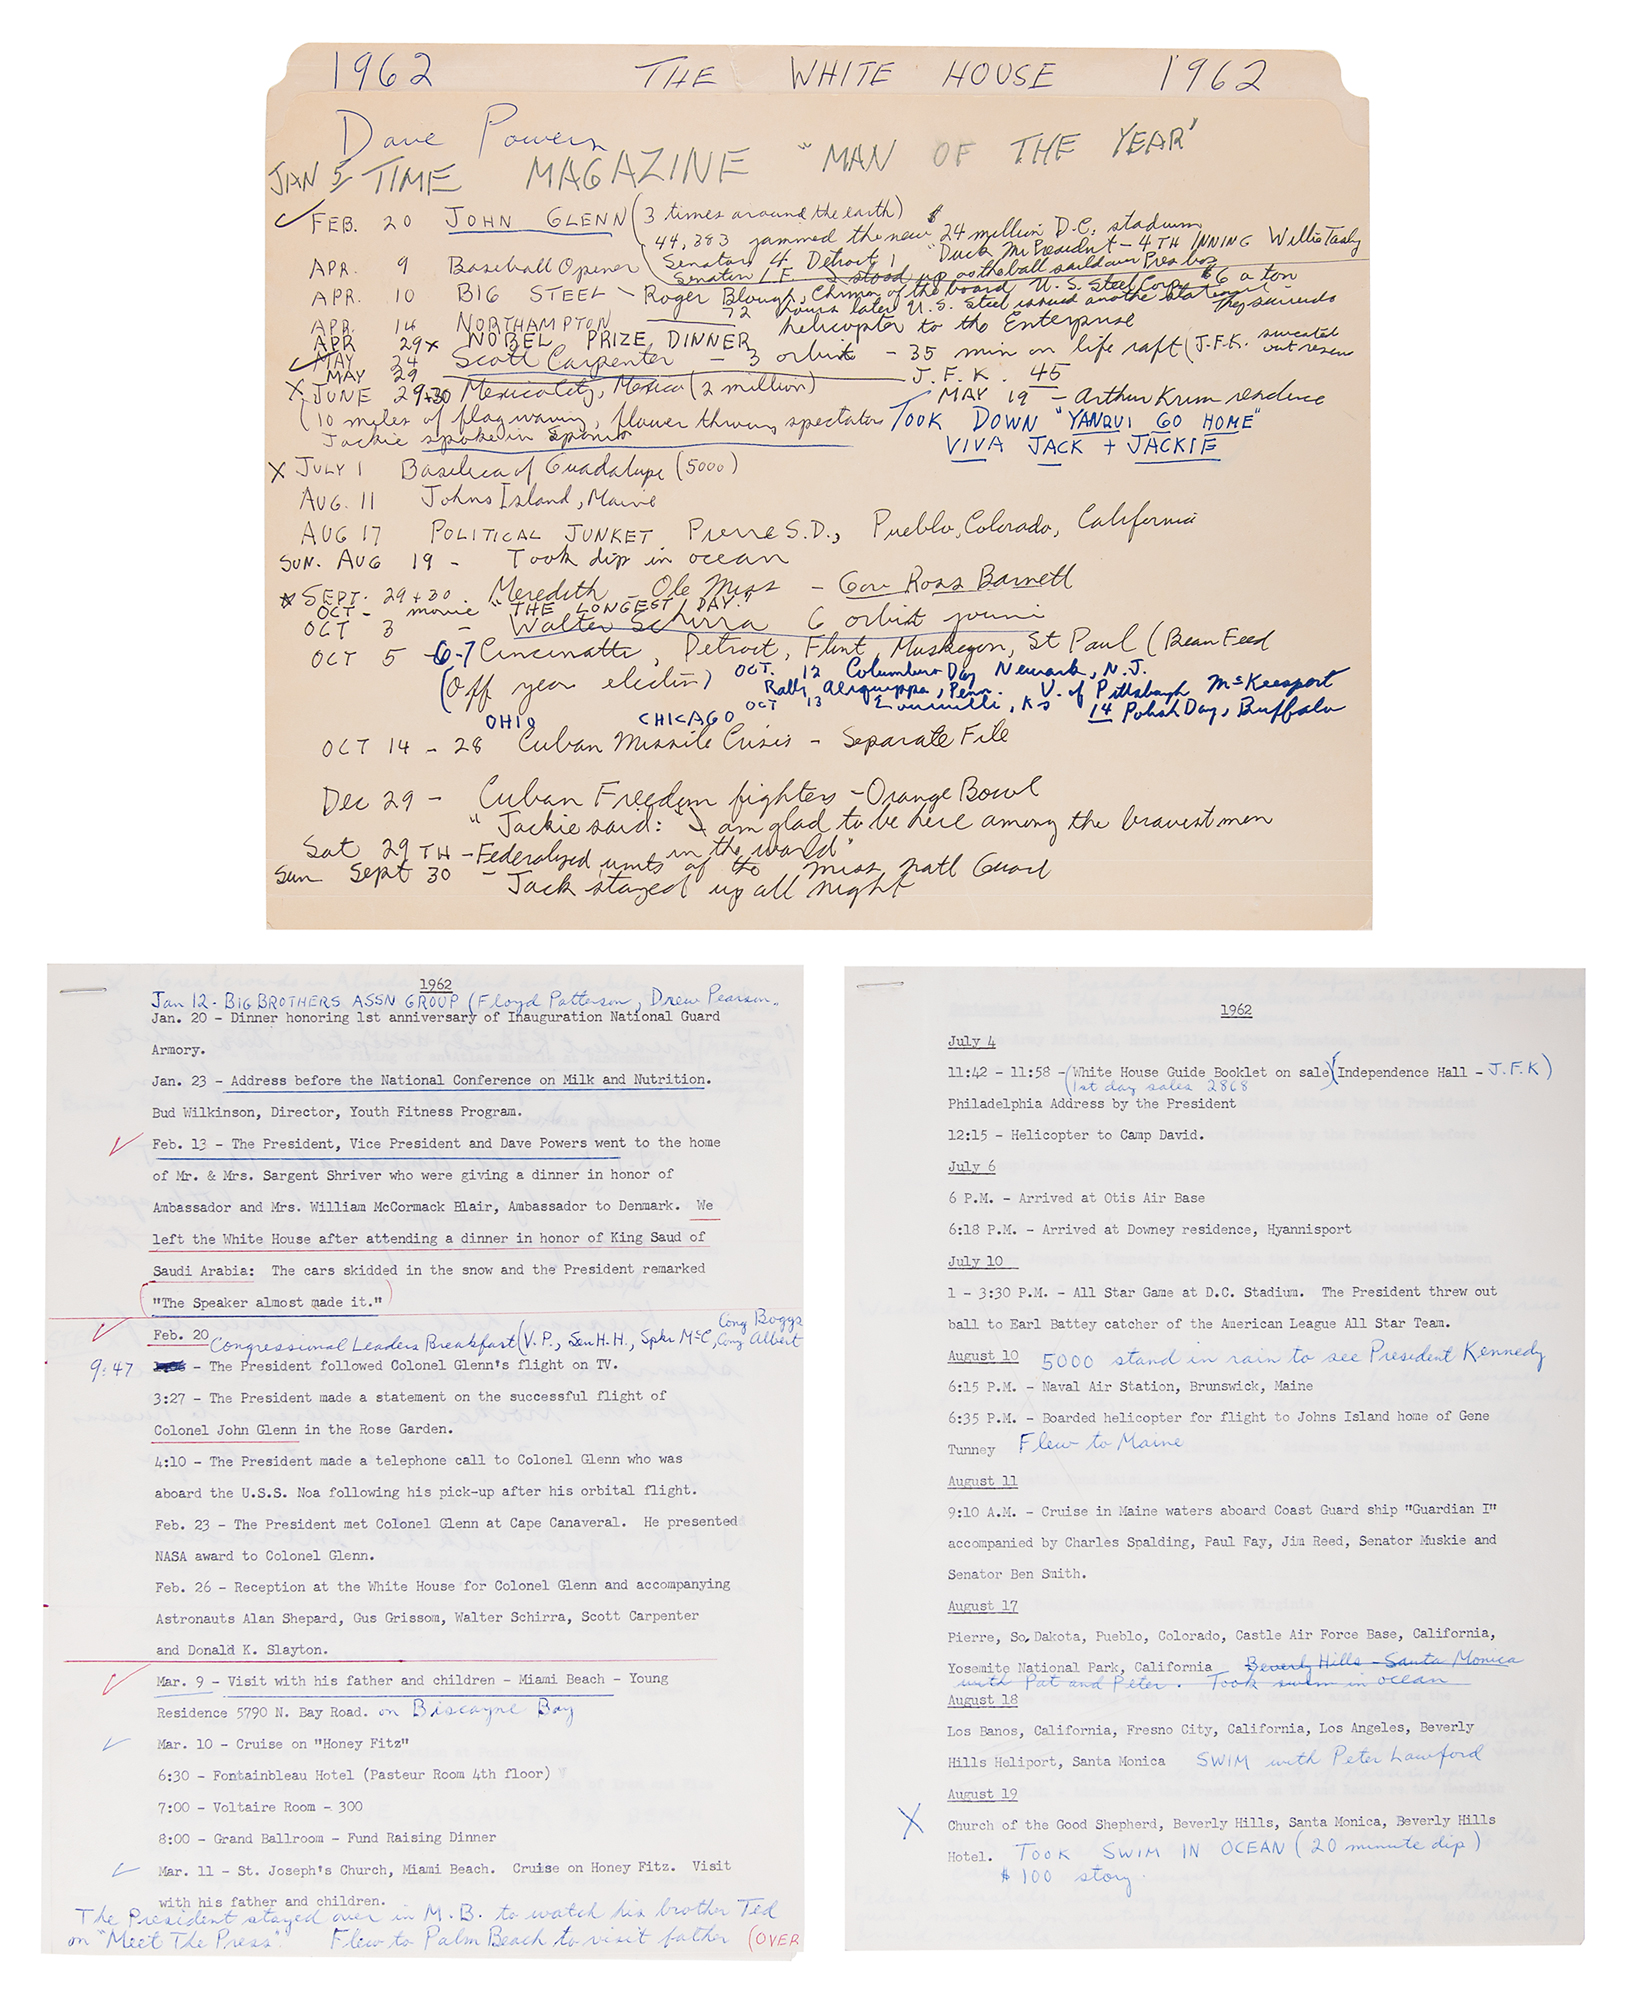 1962 THE WHITE HOUSE 1962
Dave Powers
JAN 5 TIME MAGAZINE "MAN OF THE YEAR"
FEB. 20 JOHN GLENN (3 times around the earth)
44,383 jammed the new $24 million D.C. stadium
APR. 9 Baseball Opener (Senators 4 Detroit 1 "Duck Mr President - 4TH INNING Willie Tasby
Senator L.F. stood up as the ball sailed over Pres box
APR. 10 BIG STEEL - Roger Blough, Chrmn of the board U.S. Steel Corp. $6 a ton
72 hours later U.S. Steel issued another statement - They surrender
APR. 14 NORTHAMPTON helicopter to the Enterprise
APR 29 x NOBEL PRIZE DINNER
MAY 24 Scott Carpenter - 3 orbit - 35 min on life raft (J.F.K. sweated out rescue
MAY 29 J.F.K. 45
X JUNE 29+30 Mexico City, Mexico (2 million) MAY 19 - Arthur Krim residence
(10 miles of flag waving, flower throwing spectators TOOK DOWN "YANQUI GO HOME"
Jackie spoke in Spanish VIVA JACK + JACKIE
X JULY 1 Basilica of Guadalupe (5000)
AUG. 11 Johns Island, Maine
AUG 17 POLITICAL JUNKET Pierre S.D., Pueblo, Colorado, California
SUN. AUG 19 - Took dip in ocean
X SEPT. 29+30. Meredith - Ole Miss - Gov Ross Barnett
OCT - movie "THE LONGEST DAY."
OCT 3 - Walter Schirra 6 orbit
OCT 5 -6-7 Cincinatti, Detroit, Flint, Muskegon, St Paul (Bean Feed
(Off year election) OCT. 12 Columbus Day Newark, N.J.
Rally Aliquippa, Penn. U. of Pittsburgh McKeesport
OHIO CHICAGO OCT 13 Louisville, Ky 14 Polish Day, Buffalo
OCT 14 - 28 Cuban Missile Crisis - Separate File
Dec 29 - Cuban Freedom fighters - Orange Bowl
"Jackie said: "I am glad to be here among the bravest men
in the world"
Sat 29TH - Federalized units of the Miss Natl Guard
Sun Sept 30 - Jack stayed up all night
1962
Jan 12 - BIG BROTHERS ASSN GROUP (Floyd Patterson, Drew Pearson.
Jan. 20 - Dinner honoring 1st anniversary of Inauguration National Guard
Armory.
Jan. 23 - Address before the National Conference on Milk and Nutrition.
Bud Wilkinson, Director, Youth Fitness Program.
Feb. 13 - The President, Vice President and Dave Powers went to the home
of Mr. & Mrs. Sargent Shriver who were giving a dinner in honor of
Ambassador and Mrs. William McCormack Blair, Ambassador to Denmark. We
left the White House after attending a dinner in honor of King Saud of
Saudi Arabia: The cars skidded in the snow and the President remarked
"The Speaker almost made it."
Cong Boggs
Feb. 20 Congressional Leaders Breakfast (V.P., Sen H.H., Spkr McC, Cong Albert
9:47 - The President followed Colonel Glenn's flight on TV.
3:27 - The President made a statement on the successful flight of
Colonel John Glenn in the Rose Garden.
4:10 - The President made a telephone call to Colonel Glenn who was
aboard the U.S.S. Noa following his pick-up after his orbital flight.
Feb. 23 - The President met Colonel Glenn at Cape Canaveral. He presented
NASA award to Colonel Glenn.
Feb. 26 - Reception at the White House for Colonel Glenn and accompanying
Astronauts Alan Shepard, Gus Grissom, Walter Schirra, Scott Carpenter
and Donald K. Slayton.
Mar. 9 - Visit with his father and children - Miami Beach - Young
Residence 5790 N. Bay Road. on Biscayne Bay
Mar. 10 - Cruise on "Honey Fitz"
6:30 - Fontainbleau Hotel (Pasteur Room 4th floor)
7:00 - Voltaire Room - 300
8:00 - Grand Ballroom - Fund Raising Dinner
Mar. 11 - St. Joseph's Church, Miami Beach. Cruise on Honey Fitz. Visit
with his father and children.
The President stayed over in M.B. to watch his brother Ted
on "Meet The Press". Flew to Palm Beach to visit father (OVER
1962
July 4
11:42 - 11:58 - (White House Guide Booklet on sale) (Independence Hall - J.F.K)
1st day sales 2868
Philadelphia Address by the President
12:15 - Helicopter to Camp David.
July 6
6 P.M. - Arrived at Otis Air Base
6:18 P.M. - Arrived at Downey residence, Hyannisport
July 10
1 - 3:30 P.M. - All Star Game at D.C. Stadium. The President threw out
ball to Earl Battey catcher of the American League All Star Team.
August 10 5000 stand in rain to see President Kennedy
6:15 P.M. - Naval Air Station, Brunswick, Maine
6:35 P.M. - Boarded helicopter for flight to Johns Island home of Gene
Tunney Flew to Maine
August 11
9:10 A.M. - Cruise in Maine waters aboard Coast Guard ship "Guardian I"
accompanied by Charles Spalding, Paul Fay, Jim Reed, Senator Muskie and
Senator Ben Smith.
August 17
Pierre, So. Dakota, Pueblo, Colorado, Castle Air Force Base, California,
Yosemite National Park, California Beverly Hills - Santa Monica
with Pat and Peter. Took swim in ocean
August 18
Los Banos, California, Fresno City, California, Los Angeles, Beverly
Hills Heliport, Santa Monica SWIM with Peter Lawford
August 19
X Church of the Good Shepherd, Beverly Hills, Santa Monica, Beverly Hills
Hotel. TOOK SWIM IN OCEAN (20 minute dip)
$100 story.